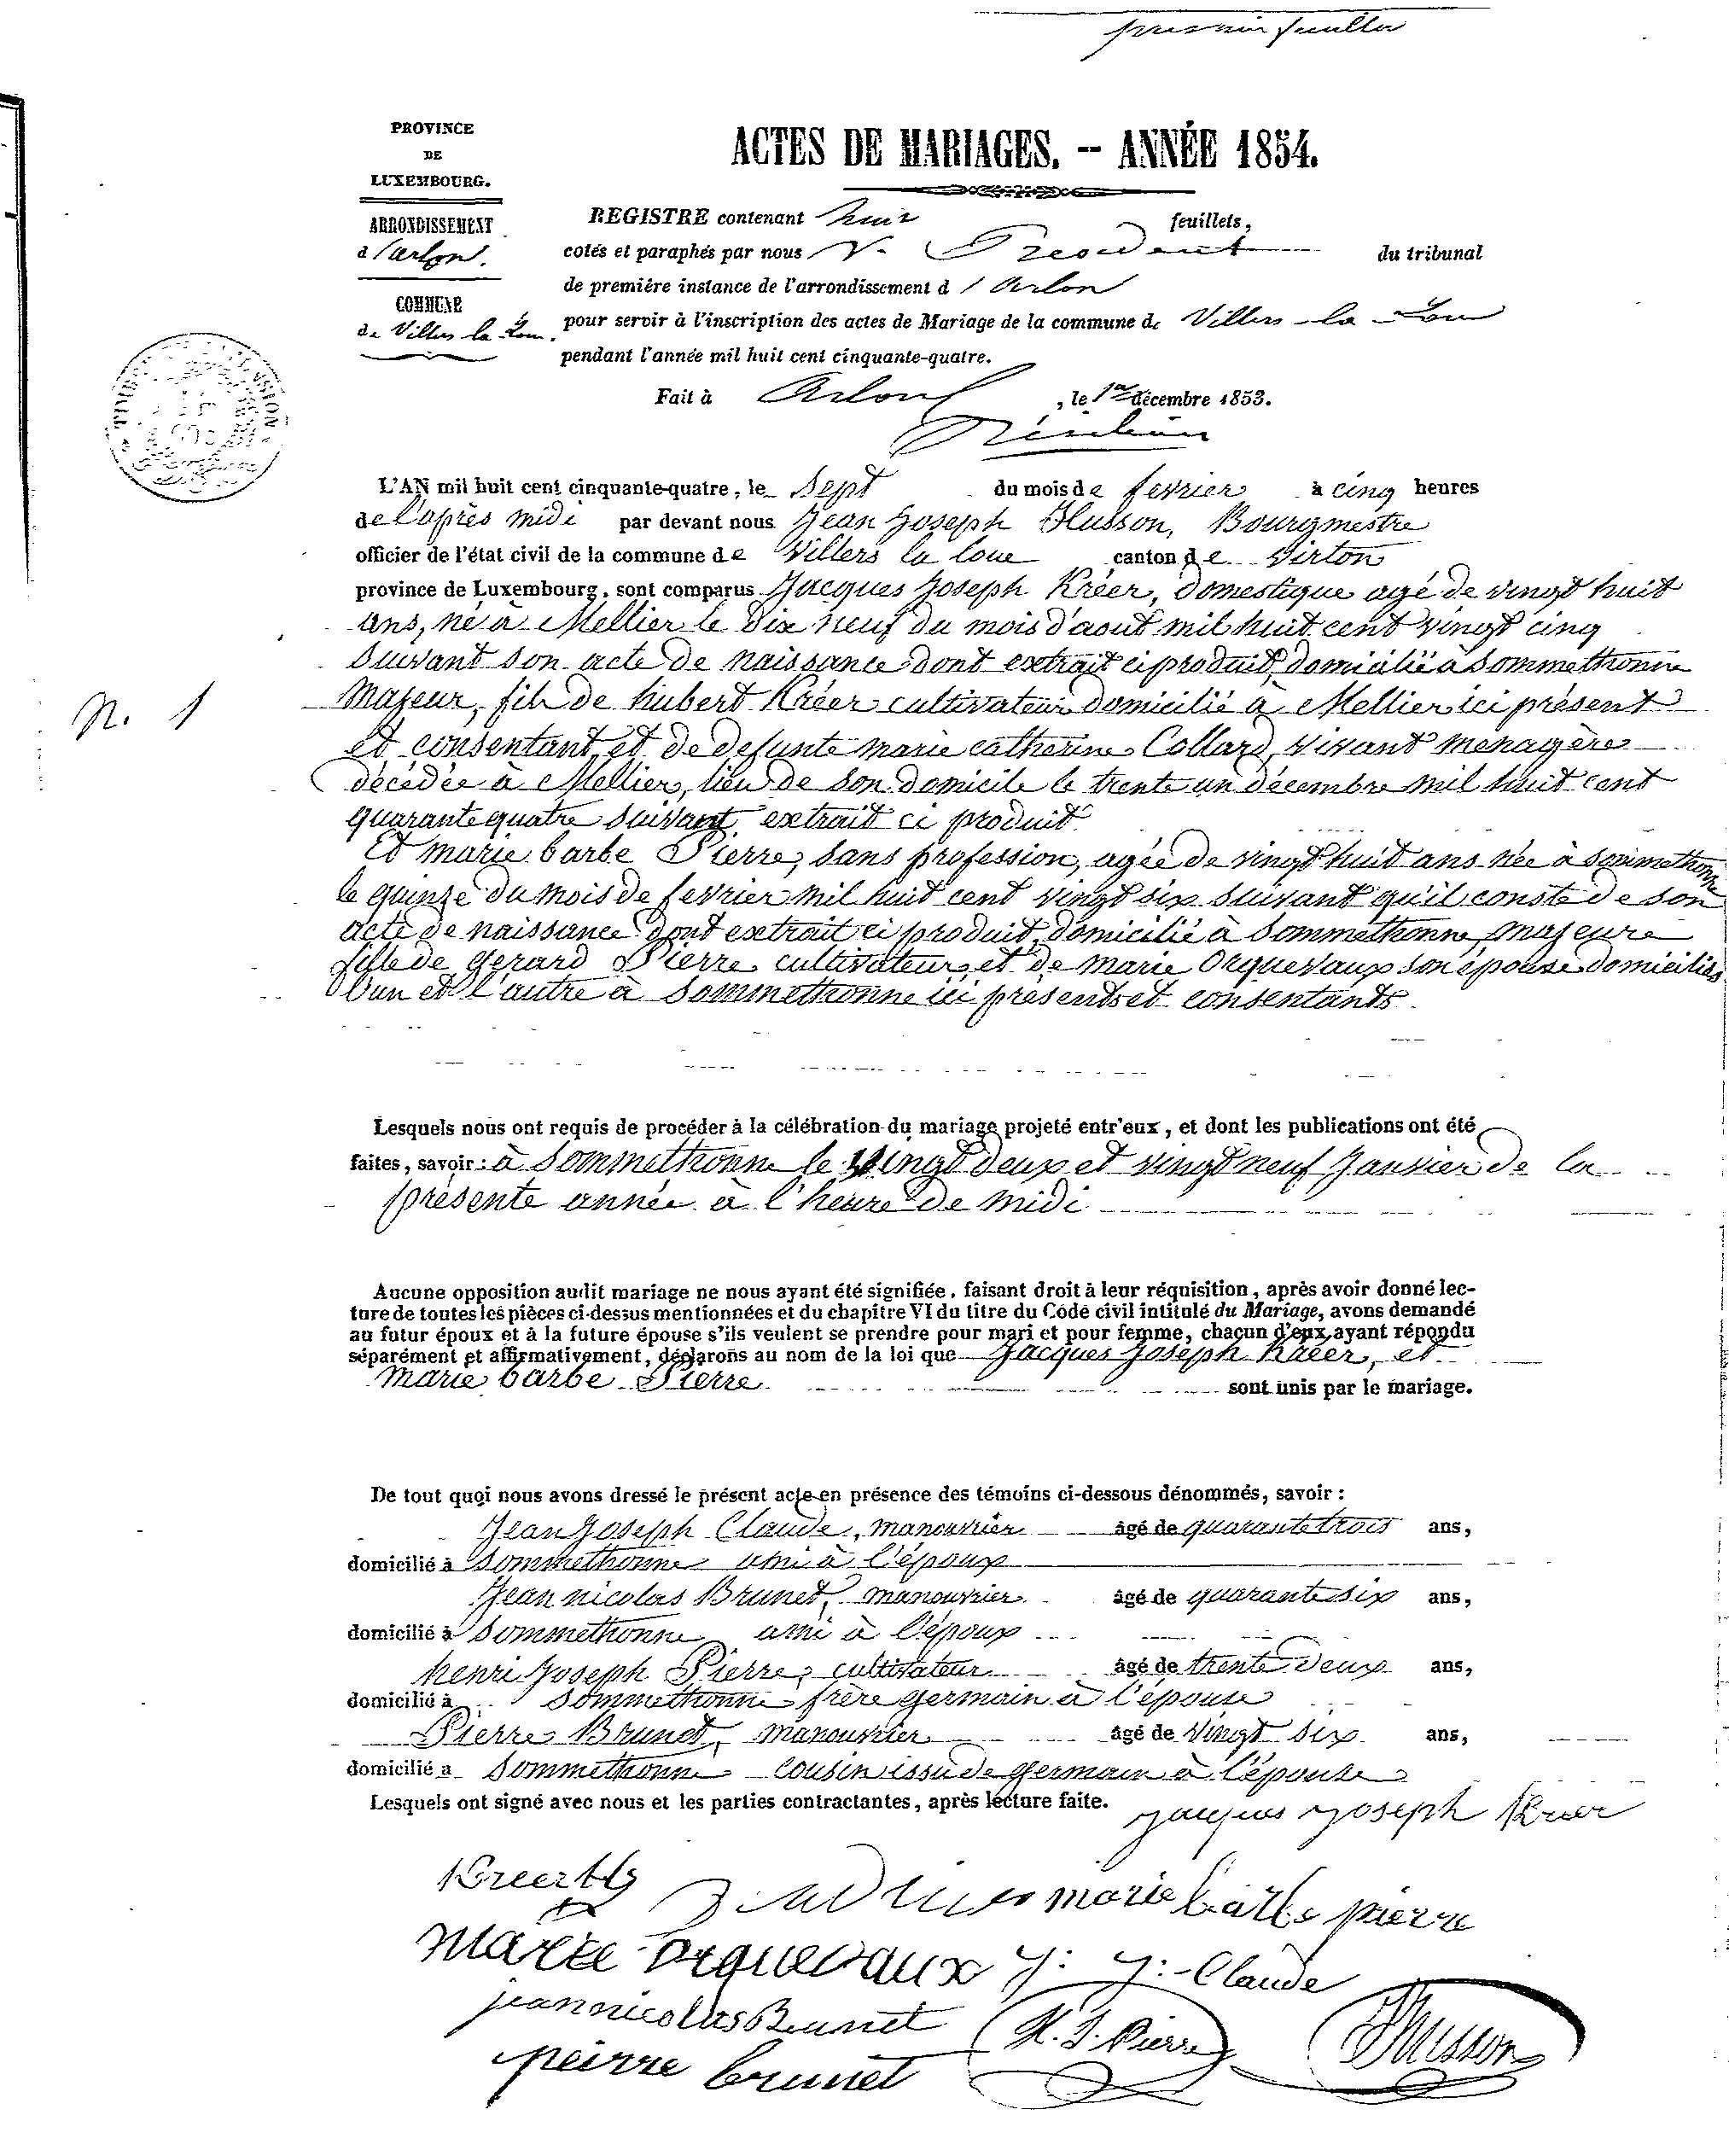 premier feuillet
PROVINCE
DE
LUXEMBOURG.
ARRONDISSEMENT
d'arlon.
COMMUNE
de Villers la Loue.
ACTES DE MARIAGES. — ANNÉE 1854.
REGISTRE contenant huit feuillets,
cotés et paraphés par nous V. Président du tribunal
de première instance de l'arrondissement d'Arlon
pour servir à l'inscription des actes de Mariage de la commune de Villers-la-Loue
pendant l'année mil huit cent cinquante-quatre.
Fait à Arlon, le 1er décembre 1853.
N. 1
L'AN mil huit cent cinquante-quatre, le Sept du mois de fevrier à cinq heures
de l'après midi par devant nous Jean Joseph Husson, Bourgmestre
officier de l'état civil de la commune de Villers la loue canton de Virton
province de Luxembourg, sont comparus Jacques Joseph Kréer, domestique agé de vingt huit
ans, né à Mellier le dix neuf du mois d'aout mil huit cent vingt cinq
suivant son acte de naissance dont extrait ci produit, domicilié à Sommethonne
Majeur, fils de hubert Kréer cultivateur domicilié à Mellier ici présent
et consentant, et de defunte marie catherine Collard, vivant menagère
décédée à Mellier, lieu de son domicile le trente un décembre mil huit cent
quarante quatre suivant extrait ci produit.
Et marie barbe Pierre, sans profession, agée de vingt huit ans née à Sommethonne
le quinze du mois de fevrier mil huit cent vingt six suivant qu'il conste de son
acte de naissance dont extrait ci produit, domicilié à Sommethonne, majeure
fille de gerard Pierre cultivateur, et de marie Orquevaux son épouse domiciliés
l'un et l'autre à Sommethonne ici présents et consentants.
Lesquels nous ont requis de procéder à la célébration du mariage projeté entr'eux, et dont les publications ont été
faites, savoir : à Sommethonne le vingt deux et vingt neuf Janvier de la
présente année à l'heure de midi
Aucune opposition audit mariage ne nous ayant été signifiée, faisant droit à leur réquisition, après avoir donné lec-
ture de toutes les pièces ci-dessus mentionnées et du chapitre VI du titre du Code civil intitulé du Mariage, avons demandé
au futur époux et à la future épouse s'ils veulent se prendre pour mari et pour femme, chacun d'eux ayant répondu
séparément et affirmativement, déclarons au nom de la loi que Jacques Joseph Kréer, et
marie barbe Pierre sont unis par le mariage.
De tout quoi nous avons dressé le présent acte en présence des témoins ci-dessous dénommés, savoir :
Jean Joseph Claude, manouvrier âgé de quarante trois ans,
domicilié à Sommethonne ami à l'époux
Jean nicolas Brunet, manouvrier âgé de quarante six ans,
domicilié à Sommethonne ami à l'époux
henri Joseph Pierre, cultivateur âgé de trente deux ans,
domicilié à Sommethonne frère germain à l'épouse
Pierre Brunet, manouvrier âgé de vingt six ans,
domicilié à Sommethonne cousin issu de germain à l'épouse
Lesquels ont signé avec nous et les parties contractantes, après lecture faite.
Jacques Joseph Kreer
Kreer marie barbe pierre
Marie Orquevaux J. J. Claude
jean nicolas Brunet H. J. Pierre JJHusson
peirre brunet